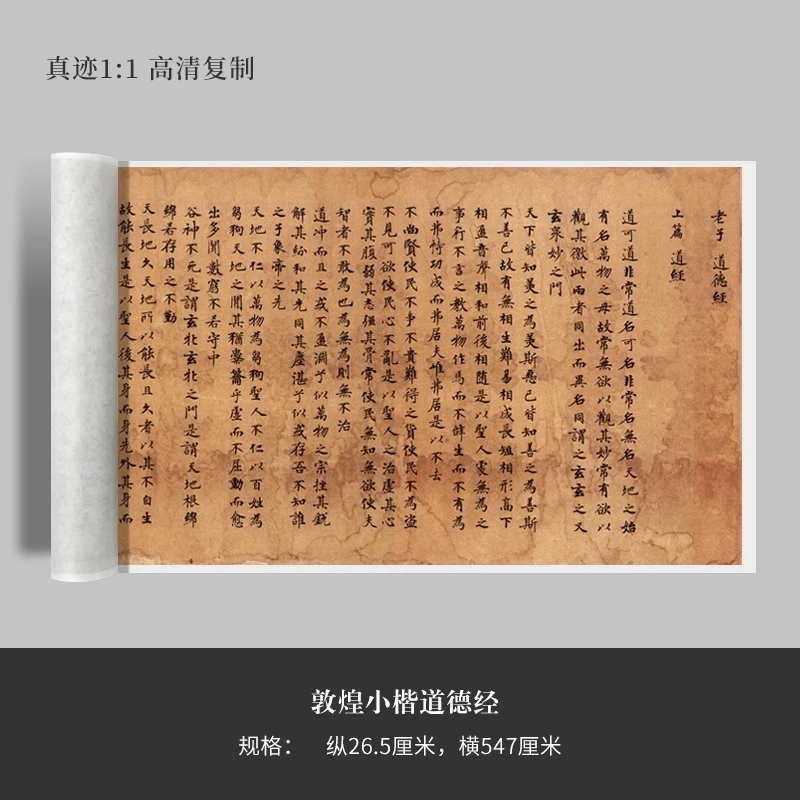 真迹1:1 高清复制
老子 道德經
上篇 道經
道可道非常道名可名非常名無名天地之始
有名萬物之母故常無欲以觀其妙常有欲以
觀其徼此兩者同出而異名同謂之玄玄之又
玄衆妙之門
天下皆知美之為美斯惡已皆知善之為善斯
不善已故有無相生難易相成長短相形高下
相盈音聲相和前後相隨是以聖人處無為之
事行不言之教萬物作焉而不辭生而不有為
而弗恃功成而弗居夫唯弗居是以不去
不尚賢使民不爭不貴難得之貨使民不為盜
不見可欲使民心不亂是以聖人之治虛其心
實其腹弱其志强其骨常使民無知無欲使夫
智者不敢為也為無為則無不治
道冲而且之或不盈淵乎似萬物之宗挫其銳
解其紛和其光同其塵湛乎似或存吾不知誰
之子象帝之先
天地不仁以萬物為芻狗聖人不仁以百姓為
芻狗天地之閒其猶橐籥乎虛而不屈動而愈
出多聞數窮不若守中
谷神不死是謂玄牝玄牝之門是謂天地根綿
綿若存用之不勤
天長地久天地所以能長且久者以其不自生
故能長生是以聖人後其身而身先外其身而
敦煌小楷道德经
规格： 纵26.5厘米，横547厘米